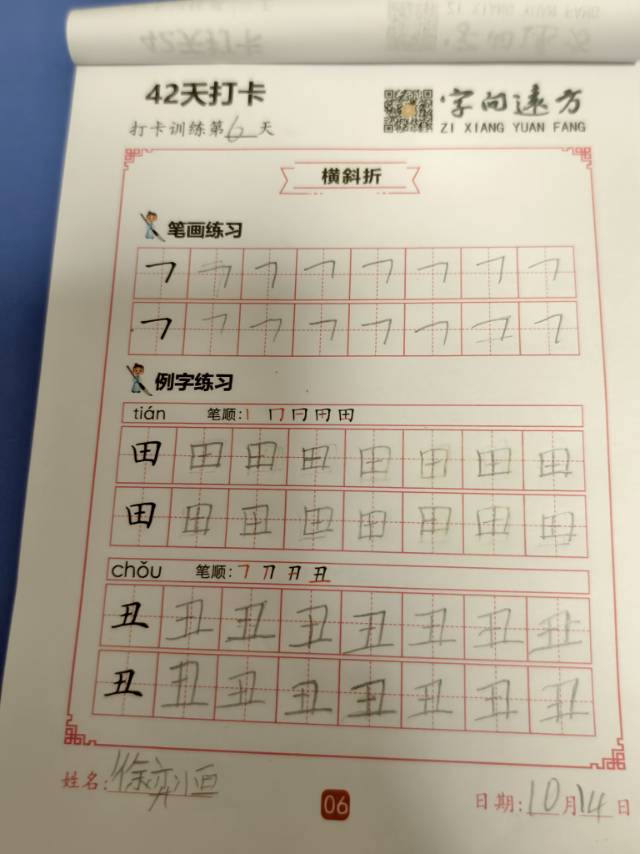 42天打卡
字向远方
打卡训练第6天
ZI XIANG YUAN FANG
横斜折
笔画练习
㇕ ㇕ ㇕ ㇕ ㇕ ㇕ ㇕ ㇕
㇕ ㇕ ㇕ ㇕ ㇕ ㇕ ㇕ ㇕
例字练习
tián 笔顺: 丨 冂 冃 田 田
田 田 田 田 田 田 田 田
田 田 田 田 田 田 田 田
chǒu 笔顺: ㇕ 刀 丑 丑
丑 丑 丑 丑 丑 丑 丑 丑
丑 丑 丑 丑 丑 丑 丑 丑
姓名: 徐弈洒
06
日期: 10月14日